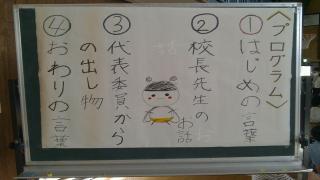 〈プログラム〉
①はじめの言葉
②校長先生の
お話
③代表委員から
の出し物
④おわりの言葉